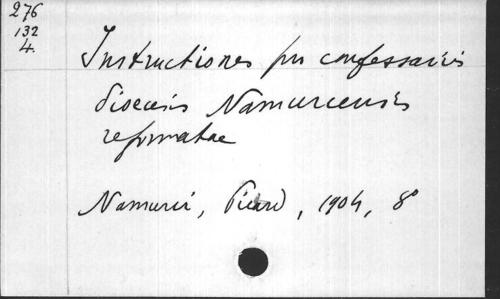 276
132
4.
Instructiones pro confessariis
dioecesis Namurcensis
reformatae
Namurci, Picard, 1904, 8°